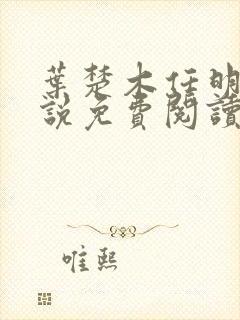 葉楚木任明
說免費閱讀
唯熙